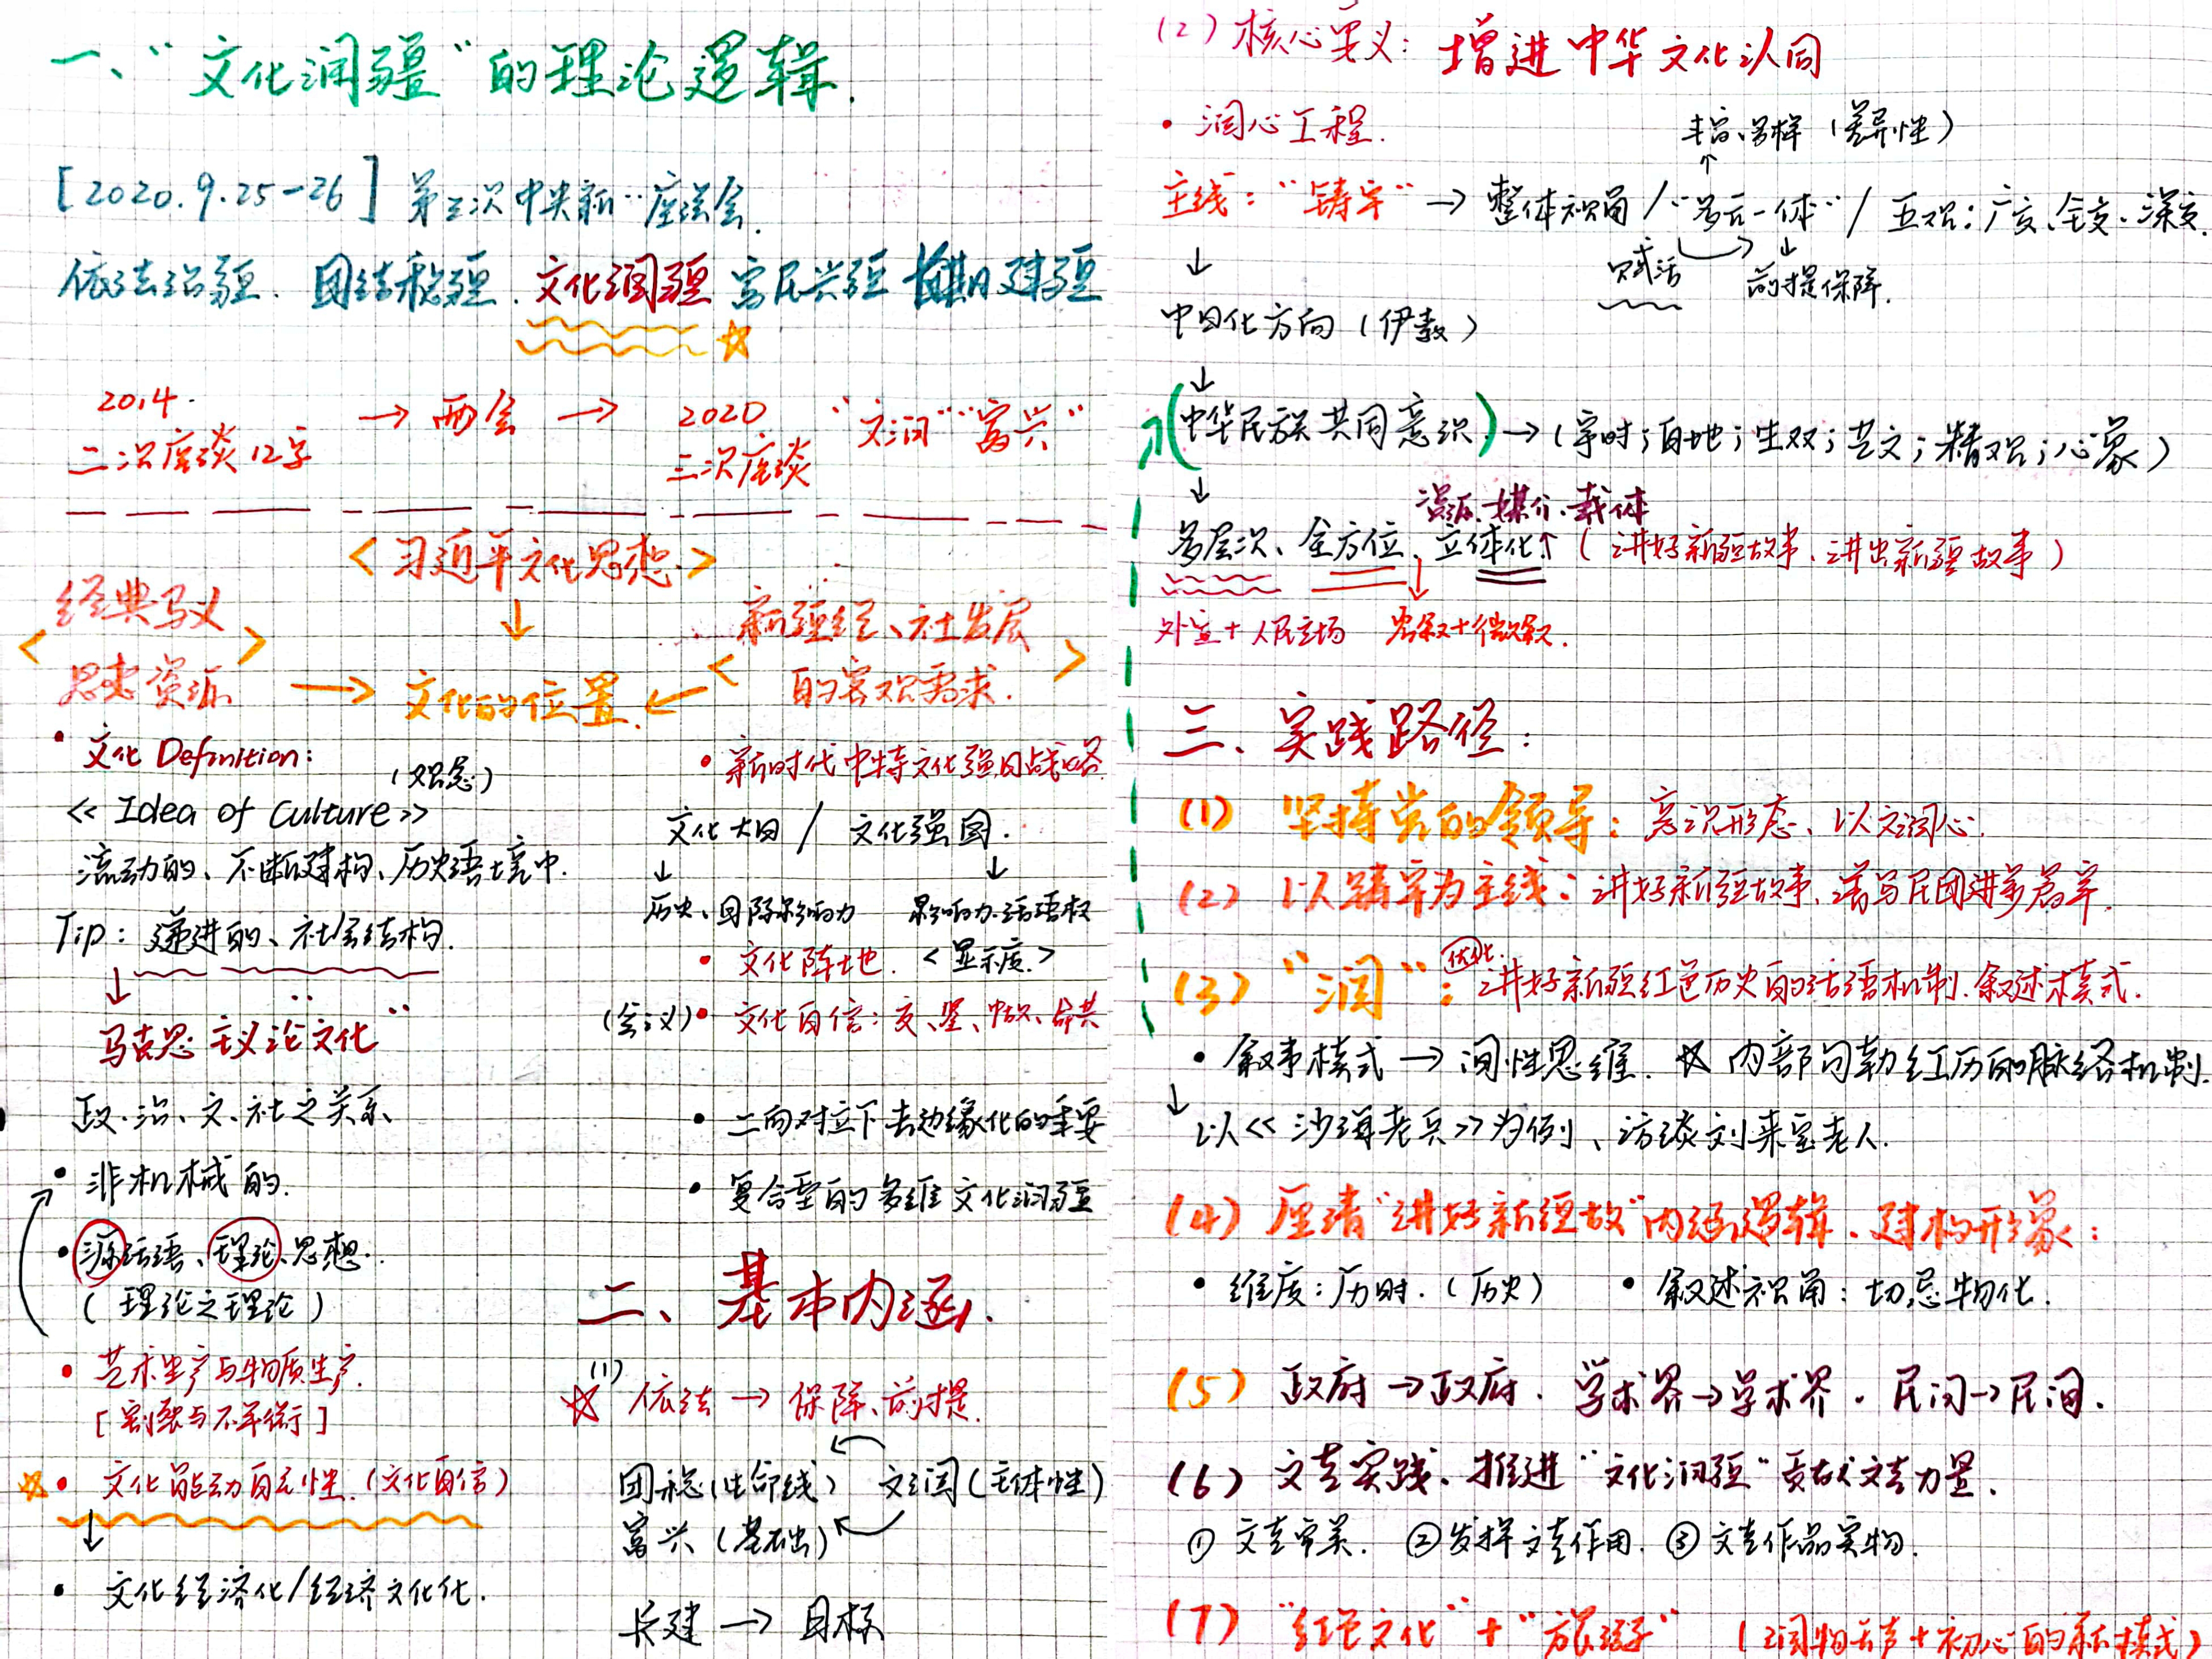 一、“文化润疆”的理论逻辑.
[2020.9.25-26] 第三次中央新…座谈会.
依法治疆. 团结稳疆. 文化润疆 富民兴疆 长期建疆
2014. → 两会 → 2020 “文润”“富兴”
二次座谈 12字 三次座谈
<习近平文化思想>
↓
<经典马义 思想资源>
→ 文化的位置. ←
<新疆经、社发展 的客观需求.>
• 文化 Definition:
(观念)
<< Idea of Culture >>
流动的、不断建构、历史语境中.
Tip: 递进的、社会结构.
↓
马克思主义论文化”
政.治、文.社之关系
• 非机械的.
• 源话语、理论、思想.
(理论之理论)
• 艺术生产与物质生产.
[割裂与不平衡]
• 文化能动自主性. (文化自信)
↓
• 文化经济化/经济文化化.
• 新时代中特文化强国战略
文化大国 / 文化强国.
↓ ↓
历史、国际影响力 影响力.话语权
• 文化阵地. <显示度.>
(会议) • 文化自信:
• 二向对立下去边缘化的重要
• 复合型的多维文化润疆
二、基本内涵.
(1) 依法 → 保障、前提.
团稳(生命线) 文润(主体性)
富兴(基础)
长建 → 目标
(2) 核心要义: 增进中华文化认同
• 润心工程.
丰富、多样 (差异性)
↑
主线: “铸牢” → 整体视角 / “多元一体” / 五观: 广度、全支、深度.
↓ 赋活 前提保障.
中国化方向 (伊教)
↓
(中华民族共同意识) → (字时; 自地; 生双; 艺文; 精观; 心象)
↓ 资源、媒介、载体
多层次、全方位、立体化↑ (讲好新疆故事、讲出新疆故事)
外宣+人民立场 宏叙+微叙.
三、实践路径:
(1) 坚持党的领导: 意识形态、以文润心.
(2) 以铸牢为主线: 讲好新疆故事、谱写民团进步篇章.
(3) “润”: 优化 讲好新疆红色历史的话语机制.叙述模式.
• 叙事模式 → 间性思维. ☆ 内部勾勒红历的脉络机制.
↓ 以<<沙海老兵>>为例、访谈刘来宝老人.
(4) 厘清“讲好新疆故”内涵逻辑、建构形象:
• 维度: 历时. (历史) • 叙述视角: 切忌物化.
(5) 政府→政府. 学术界→学术界. 民间→民间.
(6) 文艺实践. 推进“文化润疆”贡献文艺力量.
① 文艺审美. ② 发挥文艺作用. ③ 文艺作品实物.
(7) “红色文化”+“旅游” (润物无声+初心的新模式)